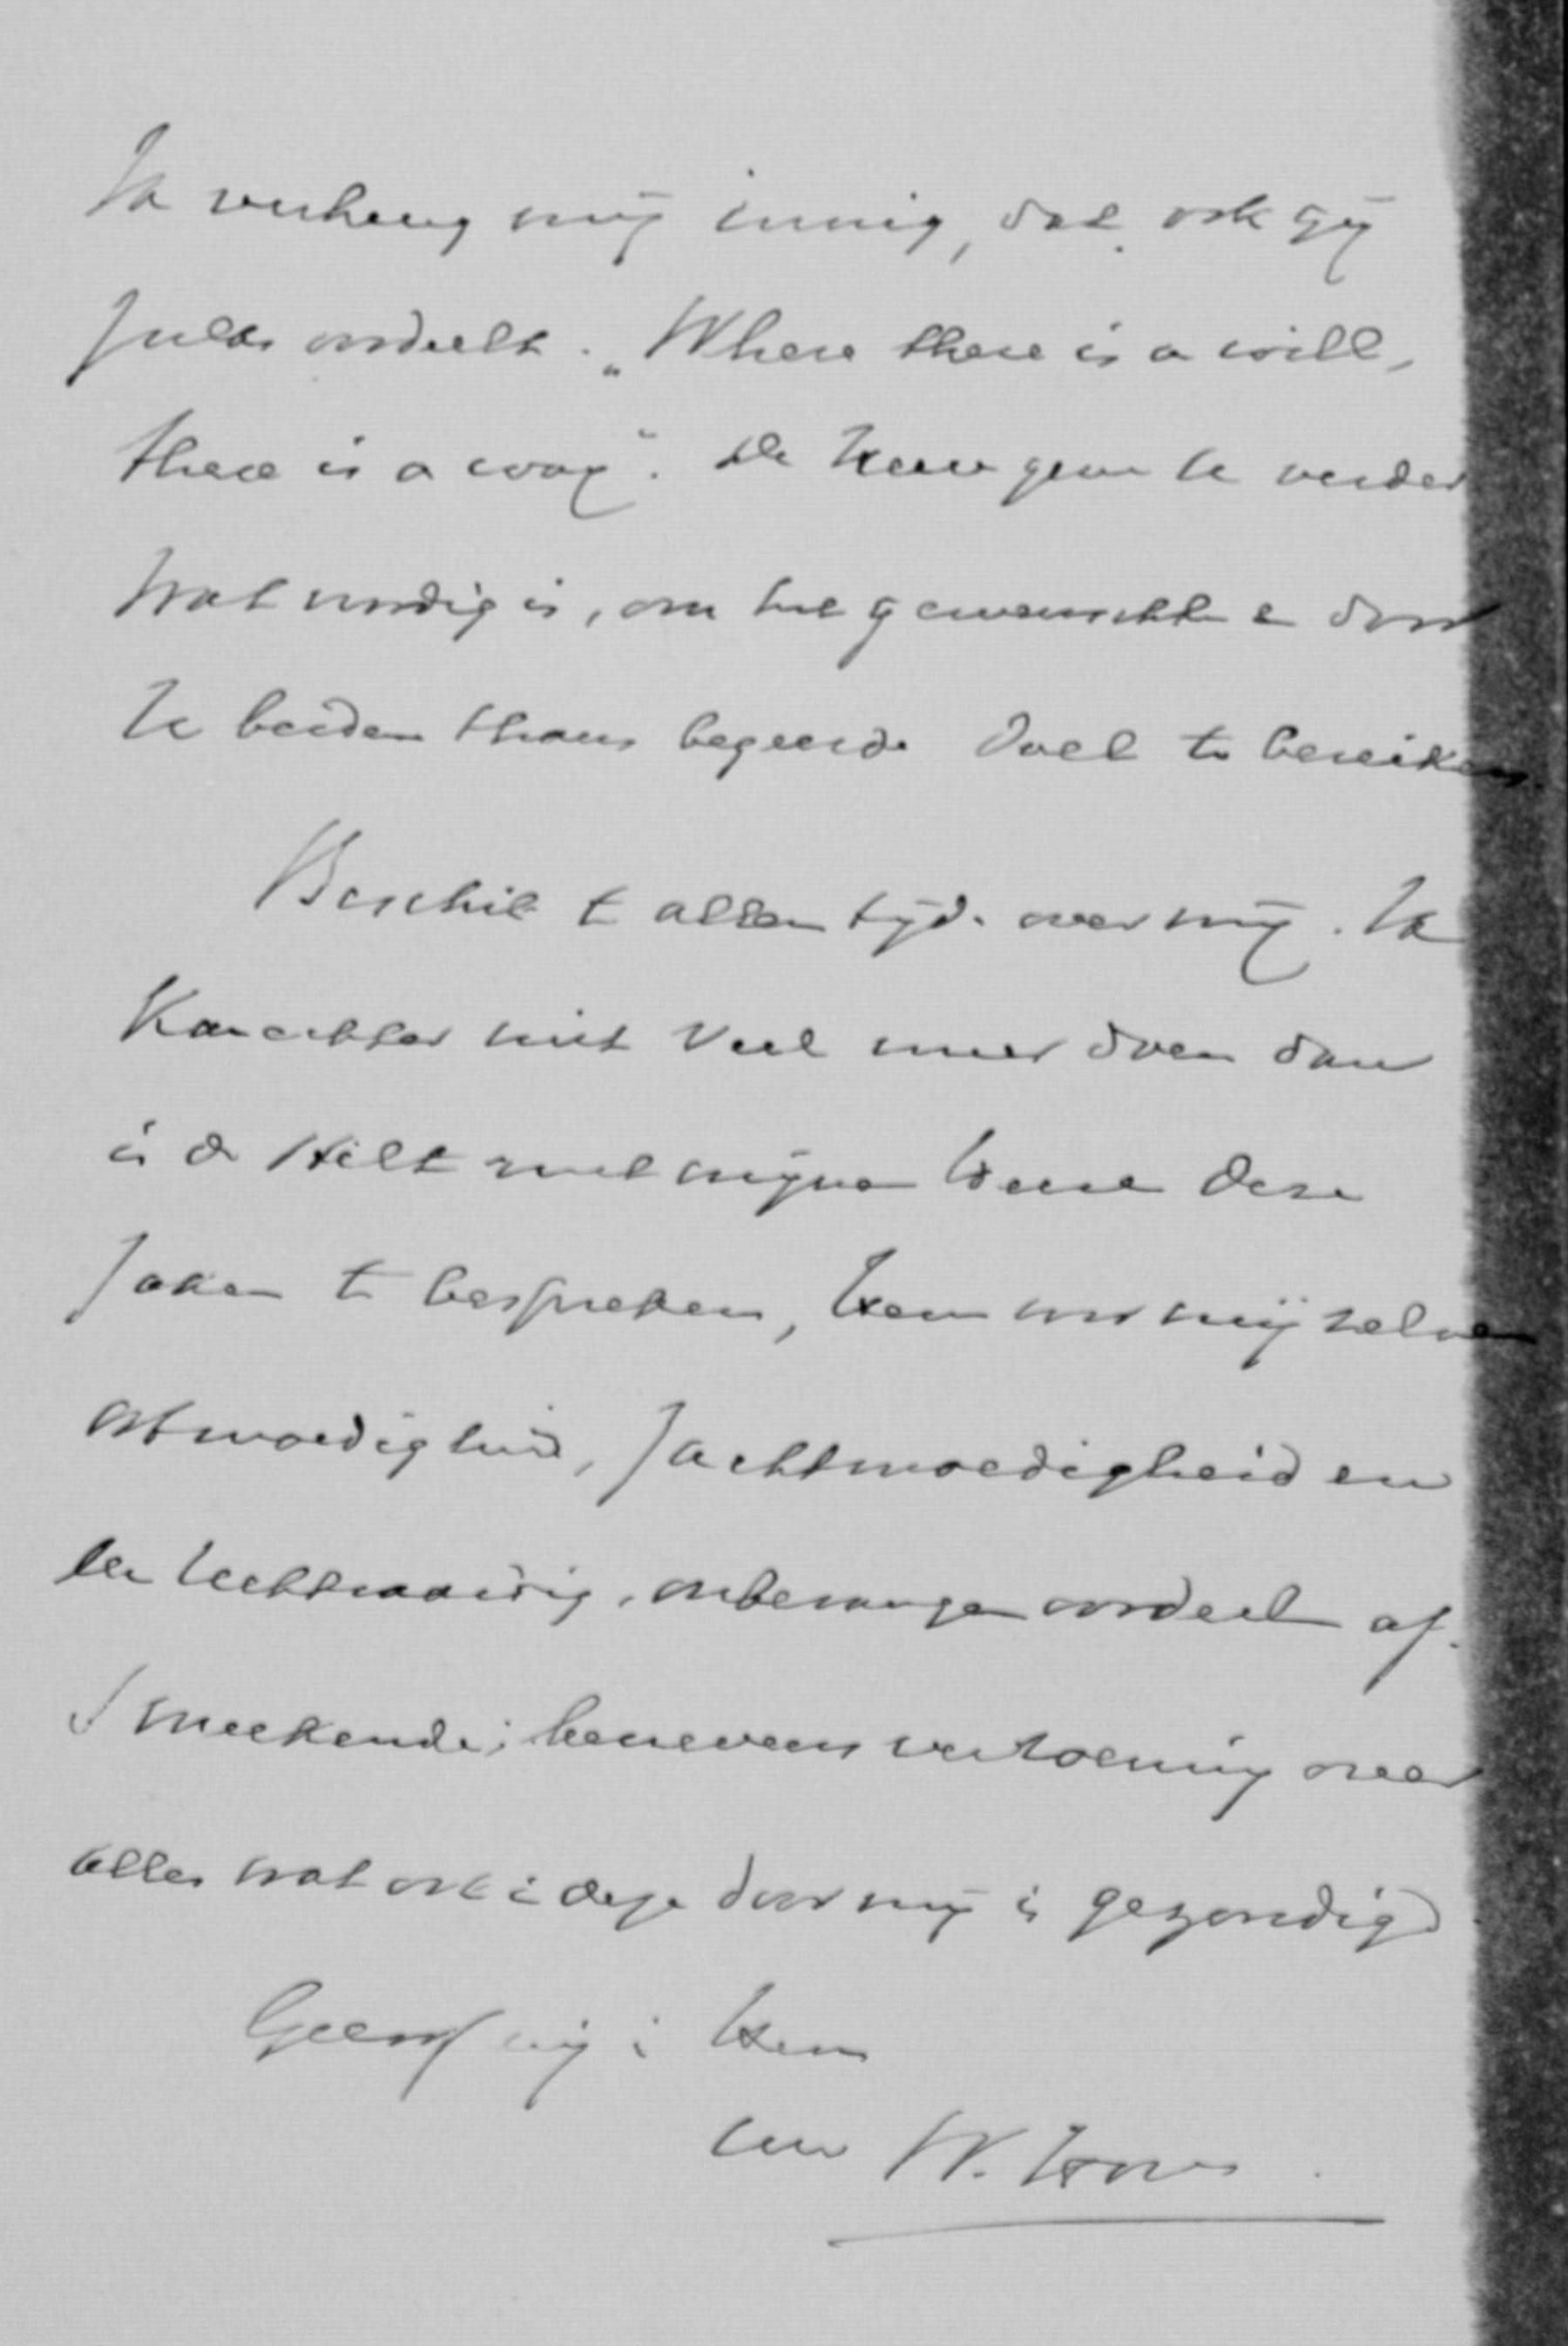 Ik verheug mij innig, dat ook gij
zulks oordeelt. „Where there is a will,
there is a way". De Heere geve U verder
wat noodig is, om het gewenschte en door
U beiden thans begeerde doel te bereiken.
Beschik te allen tijde over mij. Ik
kan echter niet veel meer doen dan
in de stilte met mijnen Heere deze
zaken te bespreken, Hem voor mijzelven
ootmoedigheid, zachtmoedigheid en
een rechtvaardig, onbevangen oordeel af-
smeekende; benevens verzoening over
alles wat ook in deze door mij is gezondigd.
Geloof mij in Hem
Uw W. Hovy.